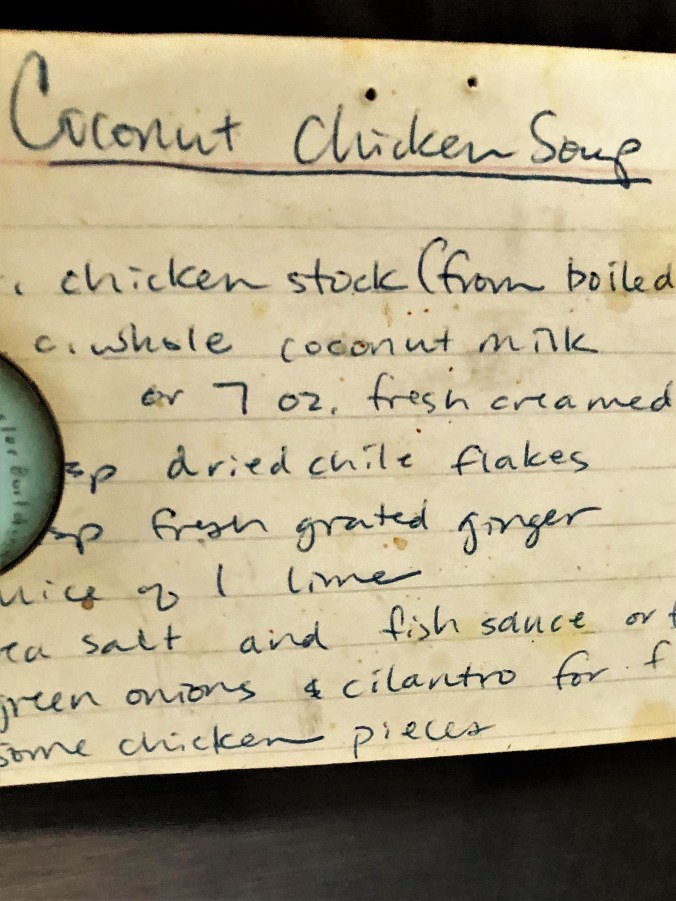 Coconut Chicken Soup
. chicken stock (from boiled
c. whole coconut milk
or 7 oz. fresh creamed
sp dried chile flakes
sp fresh grated ginger
uice of 1 lime
ea salt and fish sauce or
green onions & cilantro for f
some chicken pieces